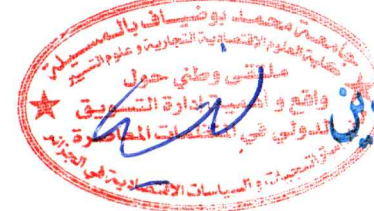 جامعة محمد بوضياف بالمسيلة
كلية العلوم الاقتصادية التجارية وعلوم التسيير
ملتقى وطني حول
واقع و أهمية إدارة التسويق
الدولي في المنظمات المعاصرة
الاستراتيجيات و السياسات الاقتصادية في الجزائر